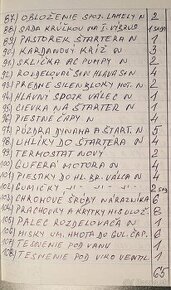 87) OBLOŽENIE SPOJ. LAMELY N 2
88) SADA KRÚŽKOV NA I. VÝBRUS 1 sada
89) PASTOREK ŠTARTERA N 1
90) KARDANOVÝ KRÍŽ N 3
91) SKLÍČKA AC PUMPY N 2
92) ROZDELOVAČ SIN HLAVSIN 4
93) PREDNÉ SILENBLOKY HOT. N 2
94) HLAVNÝ SPOJK. VÁLEC N 1
95) CIEVKA NA ŠTARTER N 1
96) PIESTNÉ ČAPY N 4
97) PÚZDRA DYNAMA A ŠTART. N 5
98) UHLÍKY DO ŠTARTERA N 4
99) TERMOSTAT NOVÝ 2
100) GUFERA MOTORA N 4
101) PIESTKY DO HL. BR. VÁLCA N 4
102) GUMIČKY -"- -"- -"- 2 sady
103) CHRÓMOVÉ ŠRÓBY NÁRAZNÍKA 6
104) PRACHOVKY A KRYTKY 8
105) PALEC ROZDELOVAČA N 1
106) MISKY UM. HMOTA DO GUL. ČAP. 6
107) TESNENIE POD VAŇU 1
108) TESNENIE POD VIKO VENTIL. 1
65